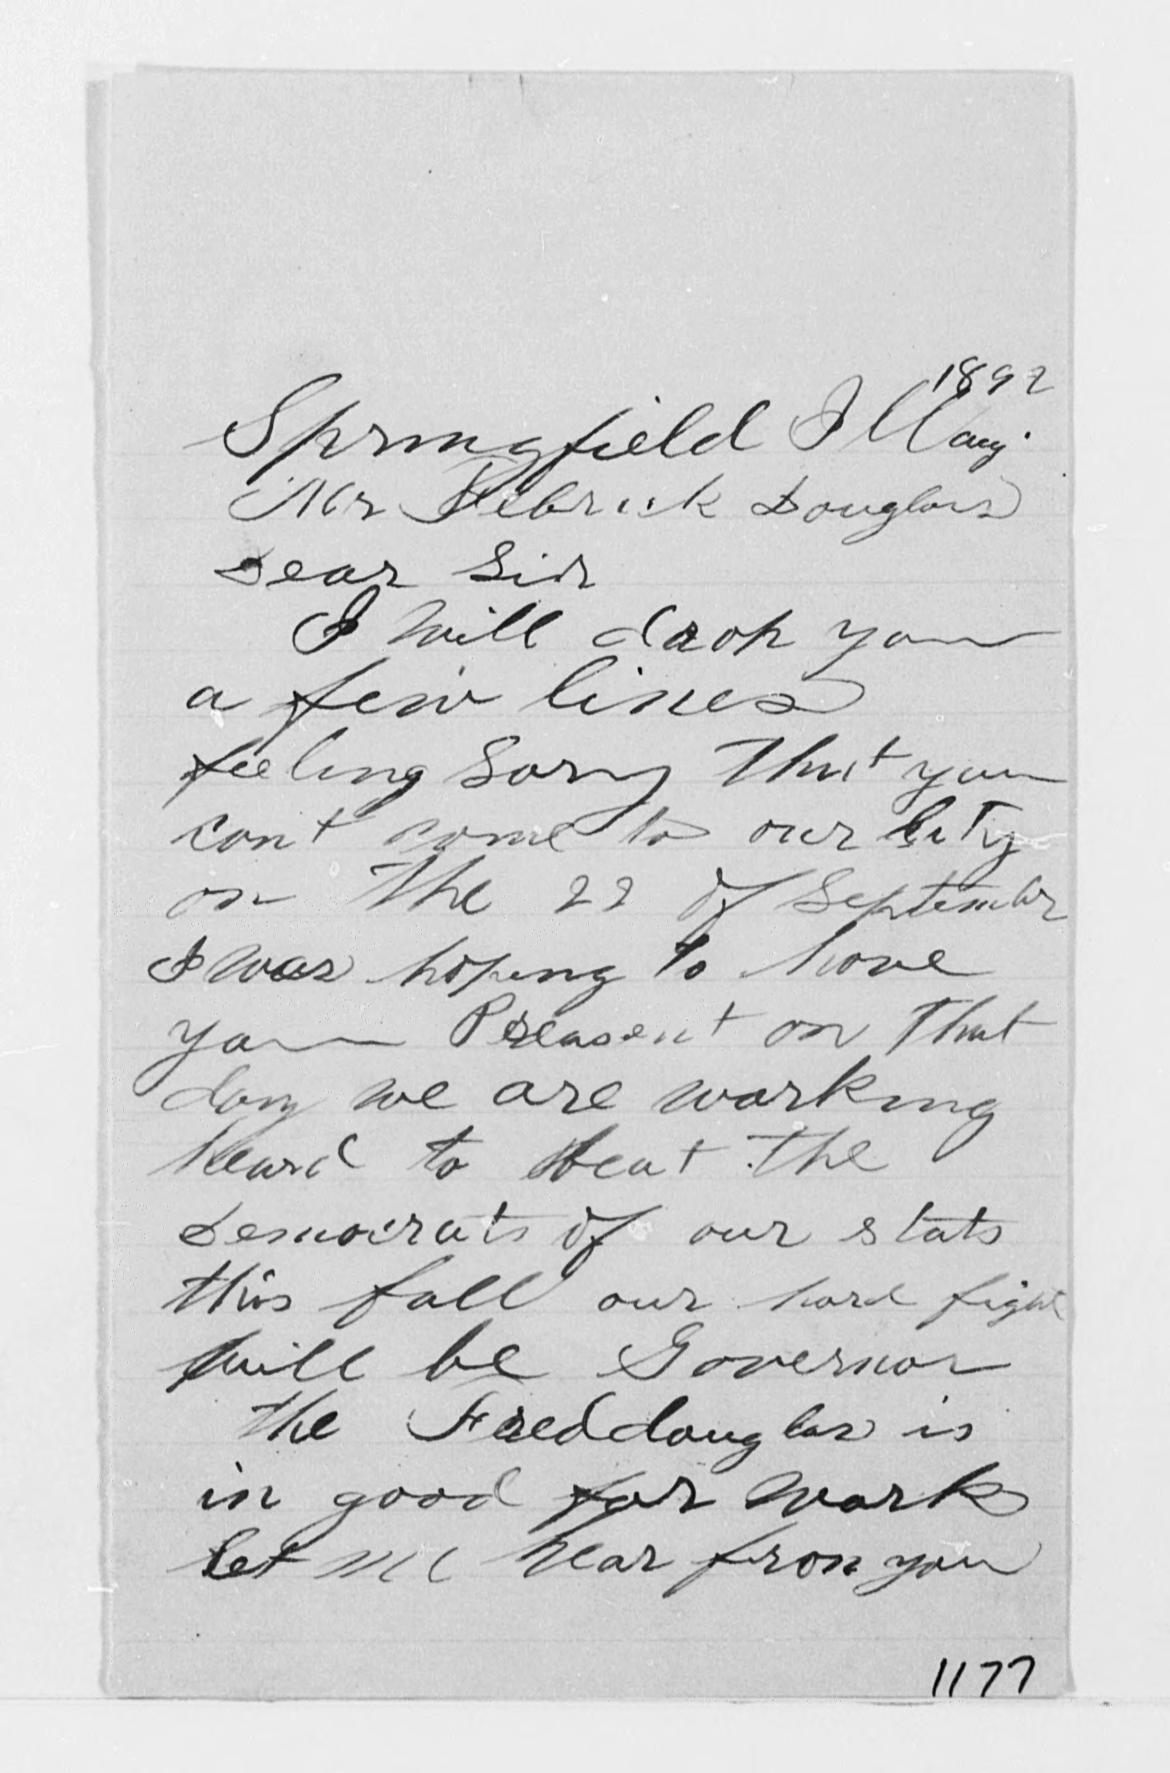 1892
Springfield Ill Aug.
Mr Febrick Douglass
Dear Sir
I will drop you
a few lines
feeling Sorry that you
cont come to our City
on the 22 of September
I was hoping to have
you Preasent on that
day we are working
heard to beat the
Democrats of our stats
this fall our hard fight
will be Governor
the Freddouglas is
in good for work
let me hear fron you
1177